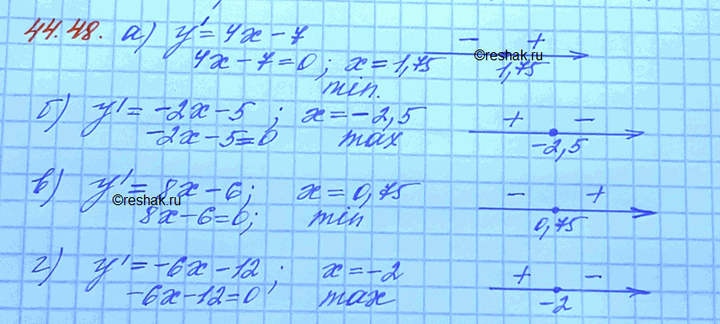 44.48. а) y' = 4x - 7
4x - 7 = 0; x = 1,75
min.
- +
©reshak.ru
1,75
б) y' = -2x - 5; x = -2,5
-2x - 5 = 0 max
+ -
-2,5
в) y' = 8x - 6; x = 0,75
©reshak.ru
8x - 6 = 0; min
- +
0,75
г) y' = -6x - 12; x = -2
-6x - 12 = 0 max
+ -
-2